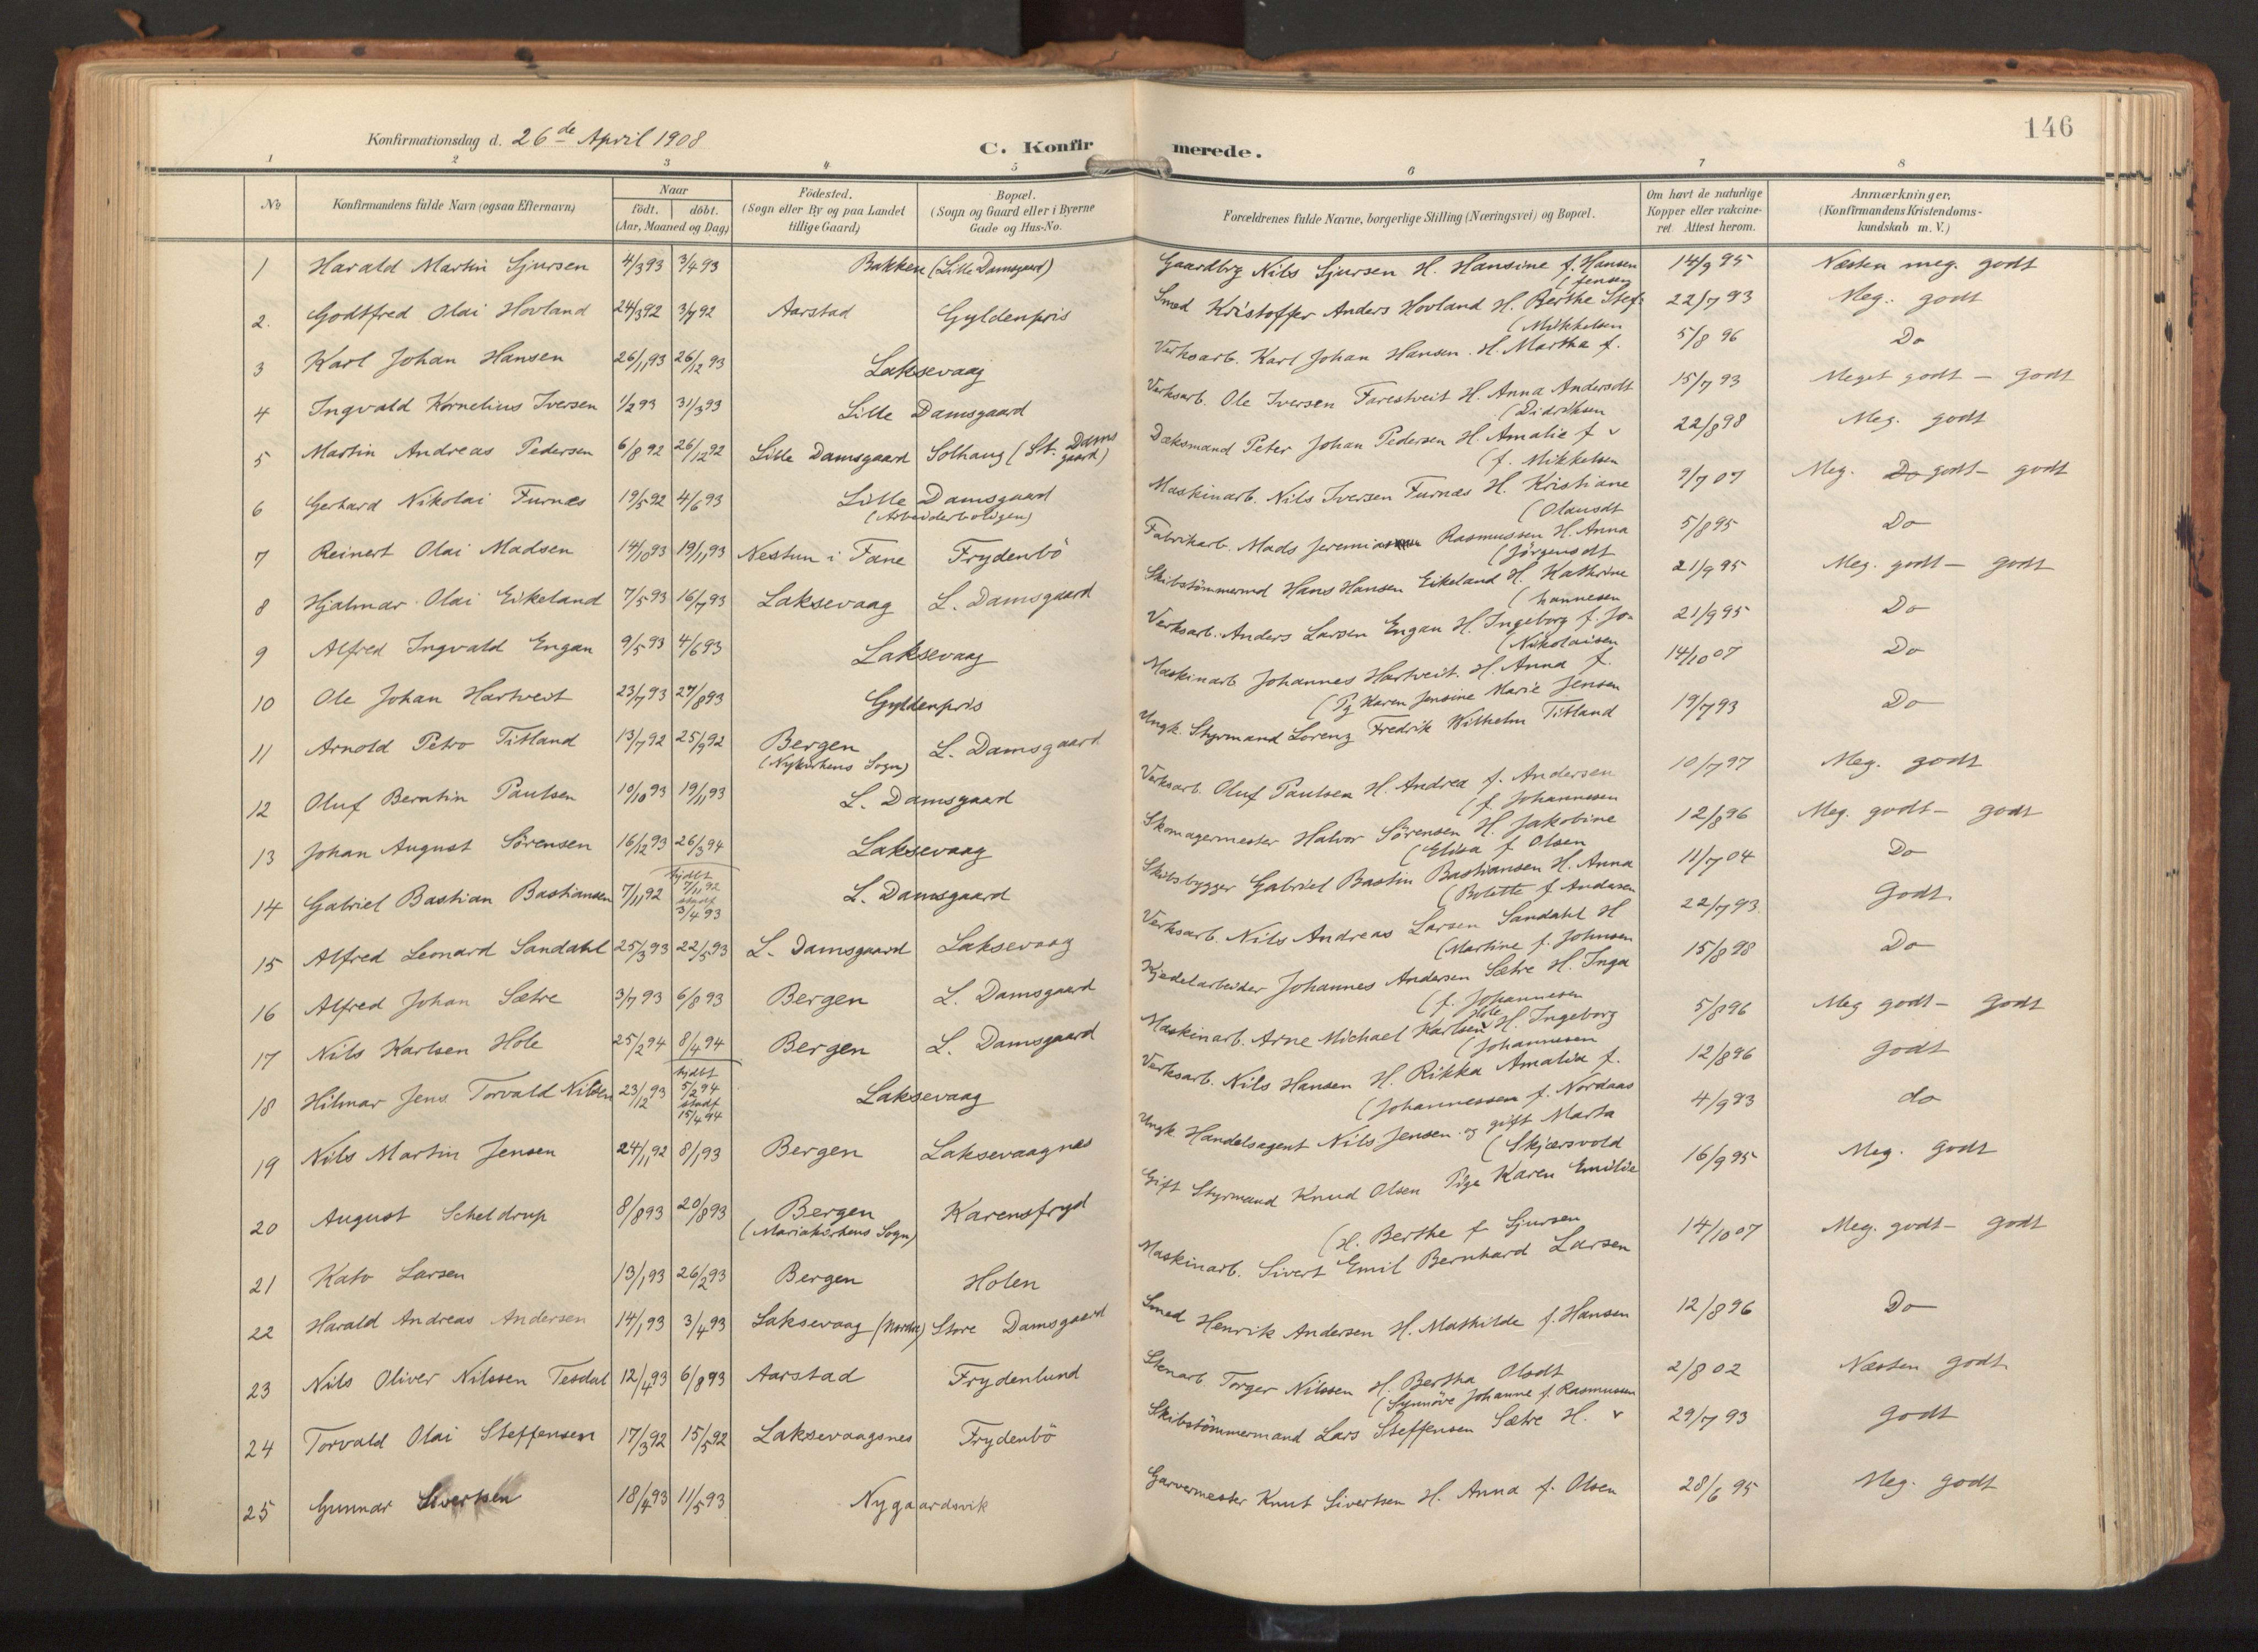 146
Konfirmationsdag d. 26de April 1908
C. Konfirmerede.
1 2 3 4 5 6 7 8
№ | Konfirmandens fulde Navn (ogsaa Efternavn) | Naar födt. | döbt. (Aar, Maaned og Dag) | Födested. (Sogn eller By og paa Landet tillige Gaard) | Bopæl. (Sogn og Gaard eller i Byerne Gade og Hus-No. | Forældrenes fulde Navne, borgerlige Stilling (Næringsvei) og Bopæl. | Om havt de naturlige Kopper eller vakcineret. Attest herom. | Anmærkninger. (Konfirmandens Kristendomskundskab m. V.)
1 Harald Martin Sjursen 4/3 93 3/4 93 Bakken (Lille Damsgaard) Gaardbrg Nils Sjursen H. Hansine f. Hansen 14/9 95 Næsten meg. godt
2. Godtfred Olai Hovland 24/3 92 3/7 92 Aarstad Gyldenpris Smed Kristoffer Anders Hovland H. Berthe Stef- (fensen 22/7 93 Meg. godt
3 Karl Johan Hansen 26/11 93 26/12 93 Laksevaag Verksarb. Karl Johan Hansen H. Martha f. (Mikkelsen 5/8 96 Do
4 Ingvald Kornelius Iversen 1/2 93 31/3 93 Lille Damsgaard Verksarb. Ole Iversen Farestveit H. Anna Andersdt 15/7 93 Meget godt - godt
5 Martin Andreas Pedersen 6/8 92 26/12 92 Lille Damsgaard Solhaug (St. Damsgaard) Dæksmand Peter Johan Pedersen H. Amalie f v (Didriksen 22/8 98 Meg. godt
6 Gerhard Nikolai Furnæs 19/5 92 4/6 93 Lille Damsgaard (Arbeiderboligen) Maskinarb. Nils Iversen Furnæs H. Kristiane (f. Mikkelsen 9/7 07 Meg. Do godt - godt
7 Reinert Olai Madsen 14/10 93 19/11 93 Nestun i Fane Frydenbö Fabrikarb. Mads Jeremias Rasmussen H. Anna (Olausdt 5/8 95 Do
8 Hjalmar Olai Eikeland 7/5 93 16/7 93 Laksevaag L. Damsgaard Skibstömmermd Hans Hansen Eikeland H. Kathrine (Jörgensdt 21/9 95 Meg. godt - godt
9 Alfred Ingvald Engan 9/5 93 4/6 93 Laksevaag Verksarb. Anders Larsen Engan H. Ingeborg f. Jo- (hannesen 21/9 95 Do
10 Ole Johan Hartveit 23/7 93 27/8 93 Gyldenpris Maskinarb Johannes Hartveit. H. Anna f. (Nikolaisen 14/10 07 Do
11 Arnold Petro Titland 13/7 92 25/9 92 Bergen (Nykirkens Sogn) L. Damsgaard Ungk. Styrmand Lorenz Fredrik Wilhelm Titland (Pg Karen Jensine Marie Jensen 19/7 93 Do
12 Oluf Berntin Paulsen 10/10 93 19/11 93 L. Damsgaard Verksarb. Oluf Paulsen H. Andrea f. Andersen 10/7 97 Meg. godt
13 Johan August Sörensen 16/12 93 26/3 94 Laksevaag Skomagermester Halvor Sörensen H. Jakobine (f. Johannessen 12/8 96 Meg. godt - godt
14 Gabriel Bastian Bastiansen 7/11 92 hjdbt 7/11 92 stadf 3/4 93 L. Damsgaard Skibsbygger Gabriel Bastin Bastiansen H. Anna (Elisa f Olsen 11/7 04 Do
15 Alfred Leonard Sandahl 25/3 93 22/5 93 L. Damsgaard Laksevaag Verksarb. Nils Andreas Larsen Sandahl H (Bolette f Andersen 22/7 93 Godt.
16 Alfred Johan Sætre 3/7 93 6/8 93 Bergen L. Damsgaard Kjedelarbeider Johannes Andersen Sætre H. Inga (Martine f. Johnsen 15/8 98 Do
17 Nils Karlsen Hole 25/2 94 8/4 94 Bergen L. Damsgaard Maskinarb. Arne Michael Karlsen Hole H. Ingeborg (f. Johannesen 5/8 96 Meg godt - godt
18 Hilmar Jens Torvald Nilsen 23/12 93 hjdbt 5/2 94 stadf 15/4 94 Laksevaag Verksarb. Nils Hansen H. Rikka Amalia f. (Johannesen 12/8 96 godt
19 Nils Martin Jensen 24/11 92 8/1 93 Bergen Laksevaagnes Ungk Handelsagent Nils Jensen og gift Marta (Johannessen f. Nordaas 4/9 93 do
20 August Scheldrup 8/8 93 20/8 93 Bergen (Mariakirkens Sogn) Karensfryd Gift Styrmand Knud Olsen Pige Karen Emilie (Skjærsvold 16/9 95 Meg. godt
21 Kato Larsen 13/1 93 26/2 93 Bergen Holen Maskinarb. Sivert Emil Bernhard Larsen (H. Berthe f Sjursen 14/10 07 Meg. godt - godt
22 Harald Andreas Andersen 14/1 93 3/4 93 Laksevaag Store Damsgaard Smed Henrik Andersen H. Mathilde f. Hansen 12/8 96 Do
23 Nils Oliver Nilssen Tesdal 12/4 93 6/8 93 Aarstad Frydenlund Stenarb. Torger Nilssen H. Bertha Olsdt 2/8 02 Næsten godt.
24 Torvald Olai Steffensen 17/3 92 15/5 92 Laksevaagsnes Frydenbö Skibstömmermand Lars Steffensen Sætre H. v (Synnöve Johanne f. Rasmussen 29/7 93 godt
25 Gunnar Sivertsen 18/4 93 11/5 93 Nygaardsvik Garvermester Knut Sivertsen H. Anna f. Olsen 28/6 95 Meg. godt